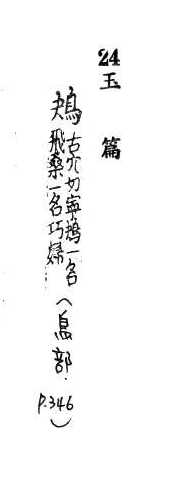 24
玉篇
鴂古穴切寧鴂一名
飛桑一名巧婦(鳥部.
p.346)